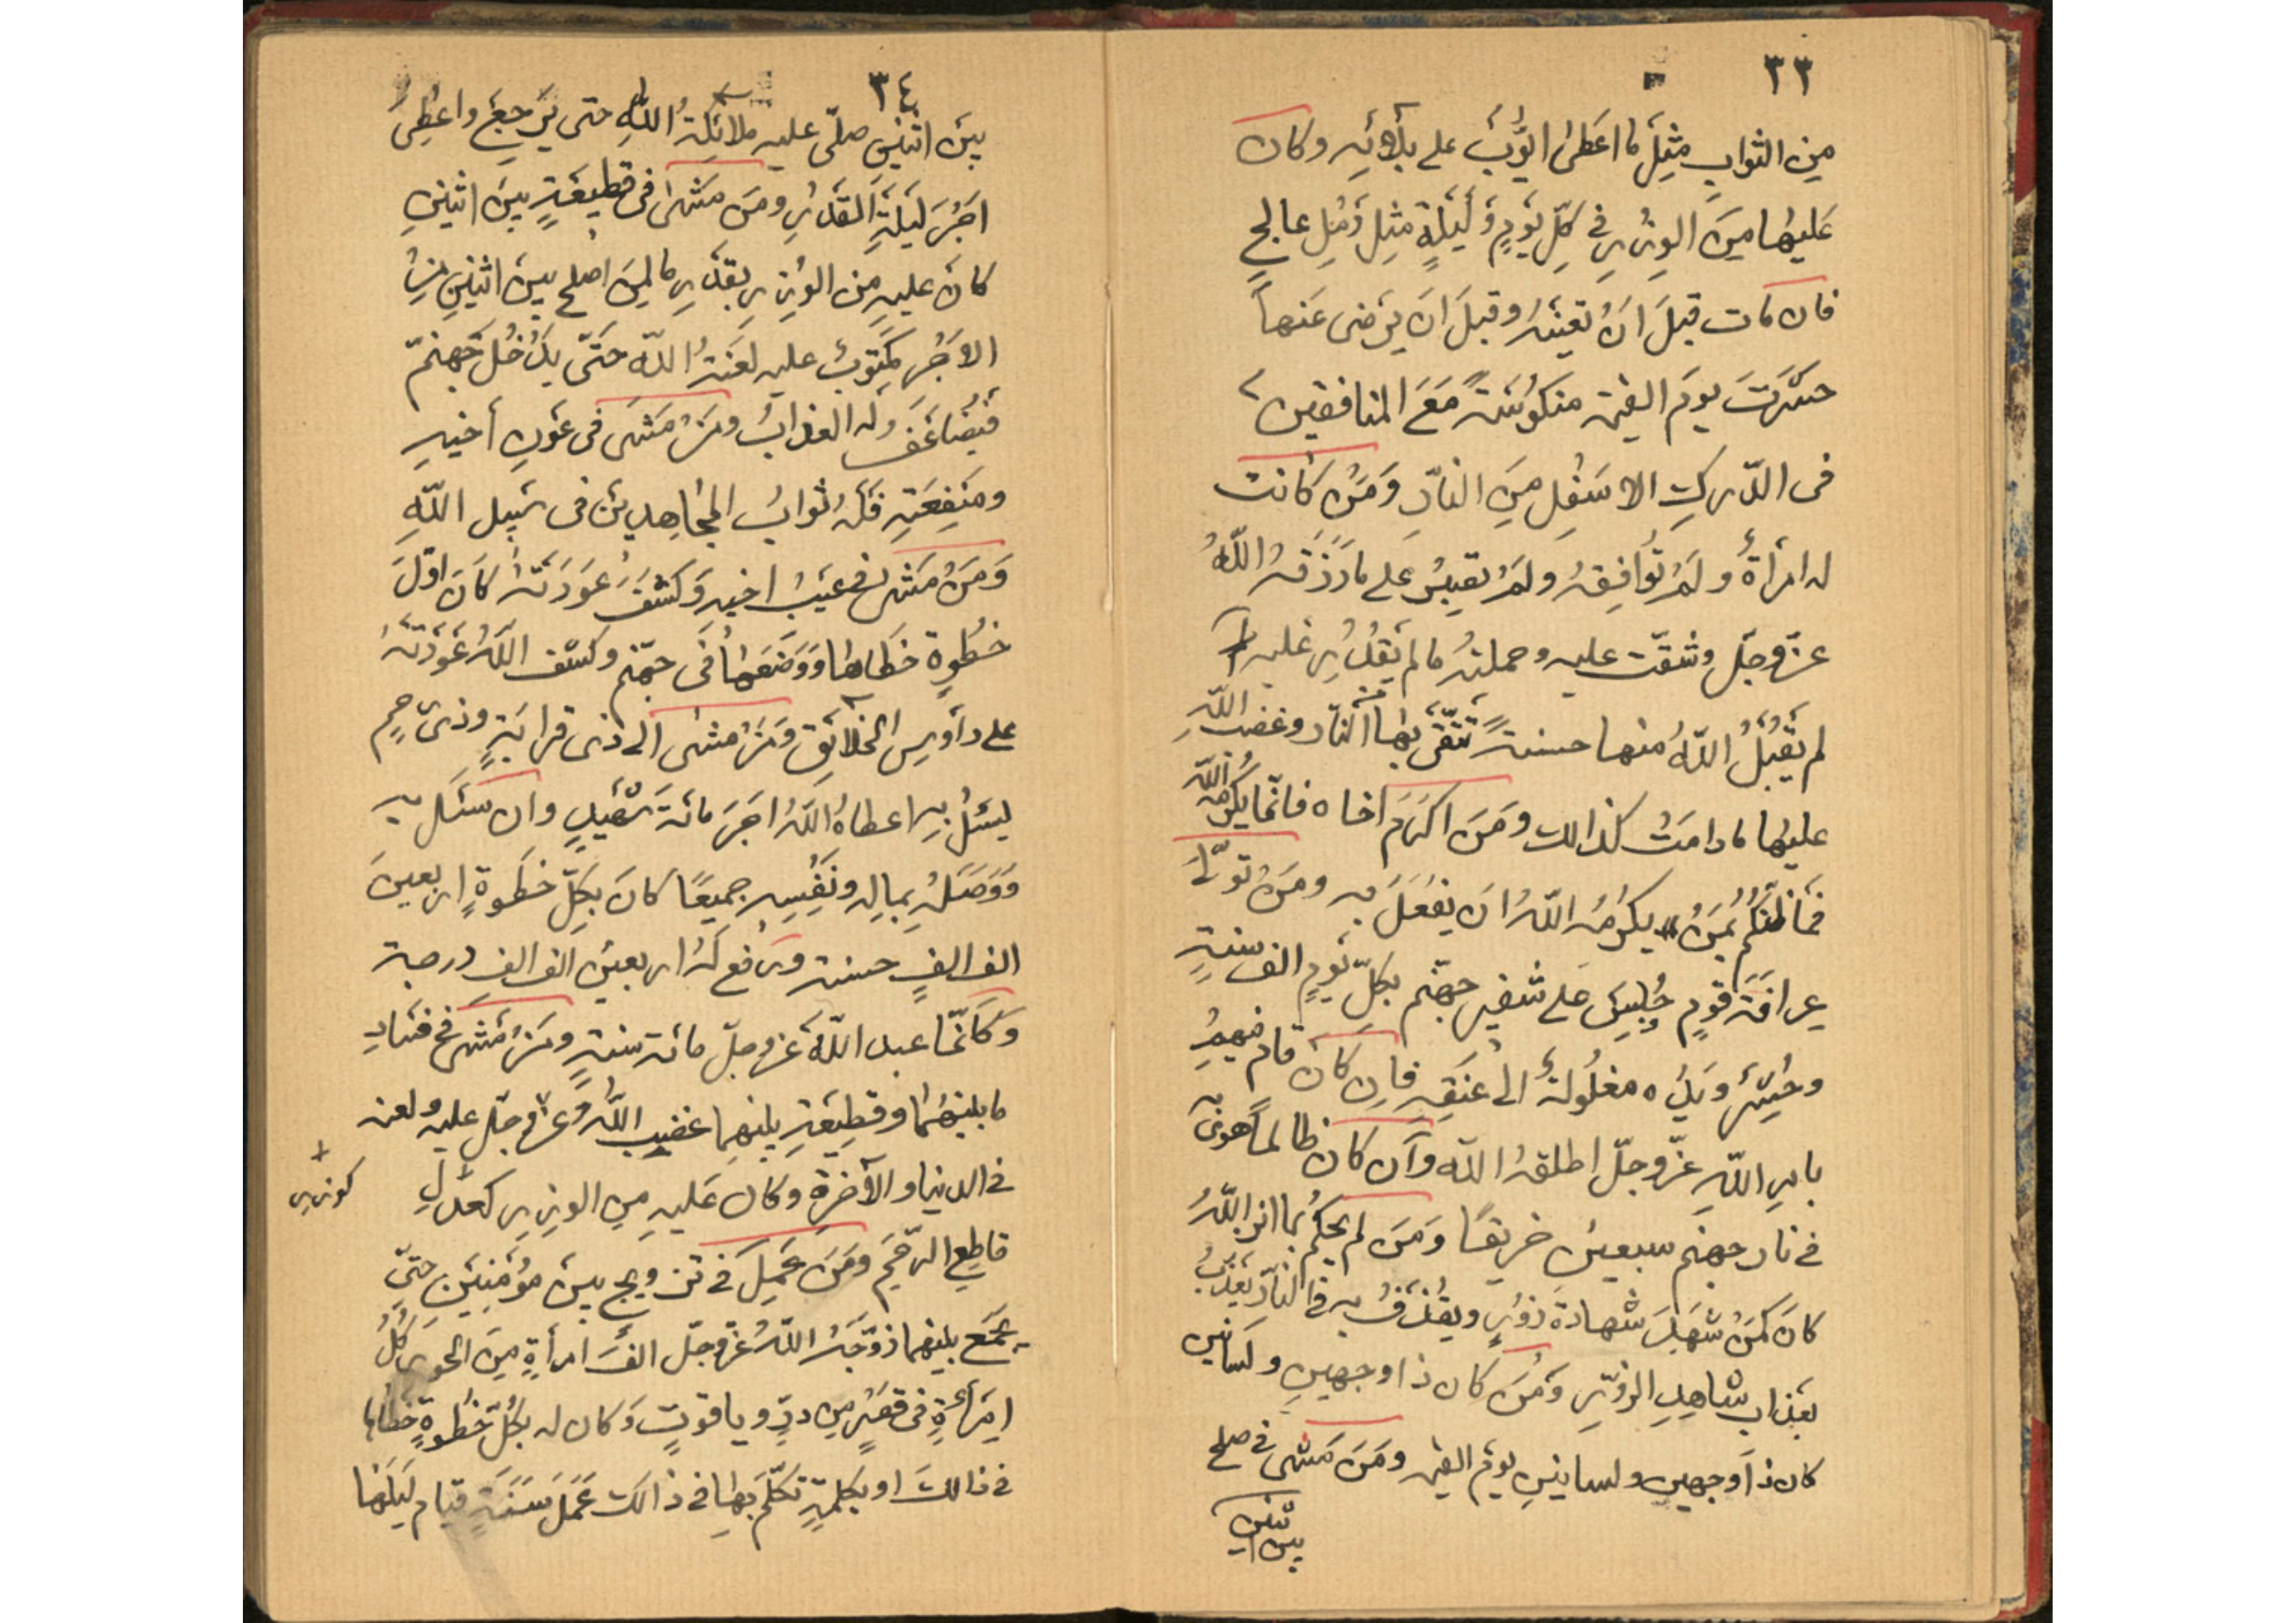 ٣٣
من الثواب مثل ما اعطى ايّوب على بلائه وكان
عليها من الوزر في كلّ يوم وليلة مثل رمل عالج
فان مات قبل ان تعينه وقبل ان يرضى عنها
حشرت يوم القيمة منكوسة مع المنافقين
فى الدّرك الاسفل من النّار ومن كانت
له امرأة ولم توافقه ولم تصبر على ما رزقه اللّه
عزّ وجلّ وشقّت عليه وحملته ما لم يقدر عليه
لم يقبل اللّه منها حسنة تتّقى بها النّار وغضب اللّه
عليها ما دامت كذالك ومن اكرم اخاه فانّما يكرم اللّه
فما ظنّكم بمن يكرم اللّه ان يفعل به ومن تولّى
عرافة قوم حبس على شفير جهنّم بكلّ يوم الف سنة
وحشر ويده مغلولة الى عنقه فان كان قام فيهم
بامر اللّه عزّ وجلّ اطلقه اللّه وان كان ظالما هوى به
في نار جهنم سبعين خريفا ومن لم يحكم بما انزل اللّه
كان كمن شهد شهادة زور ويقذف به في النّار يعذّب
بعذاب شاهد الزّور ومن كان ذا وجهين ولسانين
كان ذا وجهين ولسانين يوم القيمة ومن مشى في صلح
بين اثنين
٣٤
بين اثنين صلّى عليه ملائكة اللّه حتى يرجع واعطى
اجر ليلة القدر ومن مشى فى قطيعة بين اثنين
كان عليه من الوزر بقدر ما لمن اصلح بين اثنين من
الاجر مكتوب عليه لعنة اللّه حتّى يدخل جهنّم
فيضاعف له العذاب ومن مشى فى عون أخيه
ومنفعته فله ثواب المجاهدين فى سبيل اللّه
ومن مشى في عيب اخيه وكشف عورته كان اوّل
خطوة خطاها ووضعها فى جهنّم وكشف اللّه عورته
على رأوس الخلائق ومن مشى الى ذى قرابة وذى رحم
ليسئل به اعطاه اللّه اجر مائة شهيد وان سئل به
ووصله بماله ونفسه جميعا كان بكلّ خطوة اربعين
الف الف حسنة ورفع له اربعين الف الف درجة
وكانّما عبد اللّه عزّ وجلّ مائة سنة ومن مشى في فساد
ما بينهما وقطيعة بينهما غضب اللّه عزّ وجلّ عليه ولعنه
في الدنيا والآخرة وكان عليه من الوزر كعدل
كوزر
قاطع الرّحم ومن عمل في تزويج بين مؤمنين حتّى
يجمع بينهما زوّجه اللّه عزّ وجلّ الف امرأة من الحور كلّ
امرأة فى قصر من درّ وياقوت وكان له بكلّ خطوة خطاها
في ذالك او بكلمة تكلّم بها في ذالك عمل سنة قيام ليلها